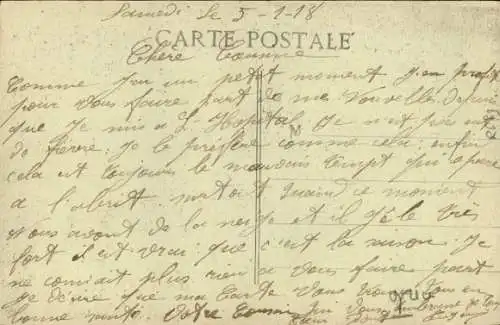 Samedi le 5-1-18
CARTE POSTALE
Chère
Comme j'ai un petit moment j'en profite
pour vous faire part de me nouvelle depuis
que je mis a L-Hopital, je n'ai pas eut
de fievre. je le préfère comme cela; enfin
cela est toujours le mauvais tempt qui
a surtout quand ce moment
nous avont de la neige et il gèle très
fort il est vrai que c'est la saison. Je
ne conait plus rien a vous faire part
je désire que ma Carte vous en
bonne santé. Votre